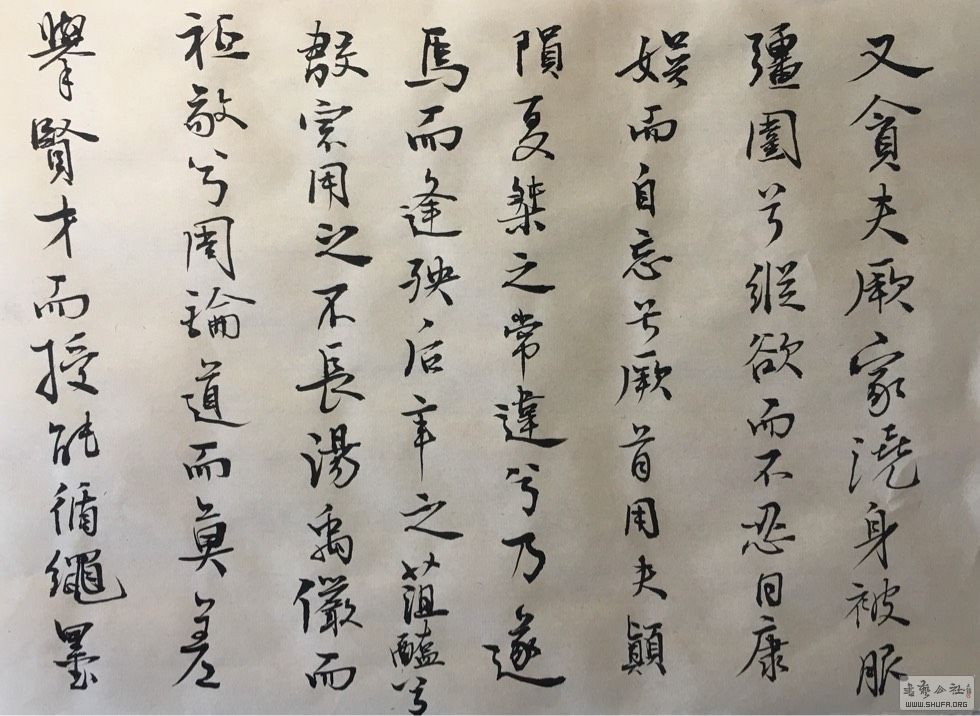 又貪夫厥家澆身被服
彊圉兮縱欲而不忍日康
娛而自忘兮厥首用夫顛
隕夏桀之常違兮乃遂
焉而逢殃后辛之菹醢兮
殷宗用之不長湯禹儼而
祗敬兮周論道而莫差
舉賢才而授能循繩墨
书艺公社
WWW.SHUFA.ORG